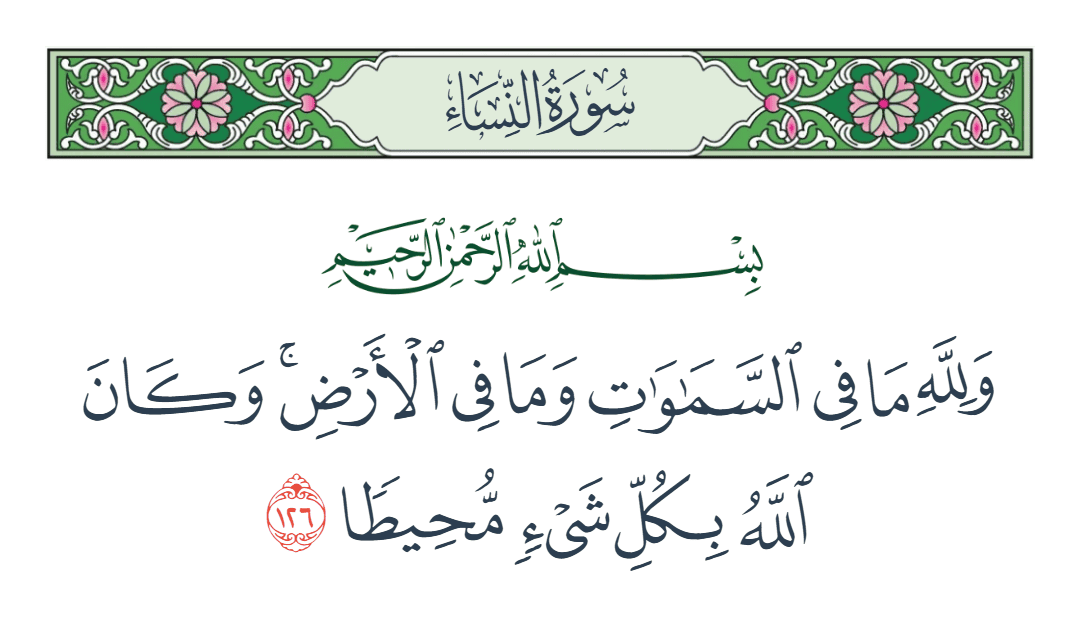 سُورَةُ النِّسَاءِ
بِسْمِ ٱللَّهِ ٱلرَّحْمَٰنِ ٱلرَّحِيمِ
وَلِلَّهِ مَا فِي ٱلسَّمَٰوَٰتِ وَمَا فِي ٱلْأَرْضِ ۚ وَكَانَ
ٱللَّهُ بِكُلِّ شَيْءٍ مُّحِيطًا ١٢٦